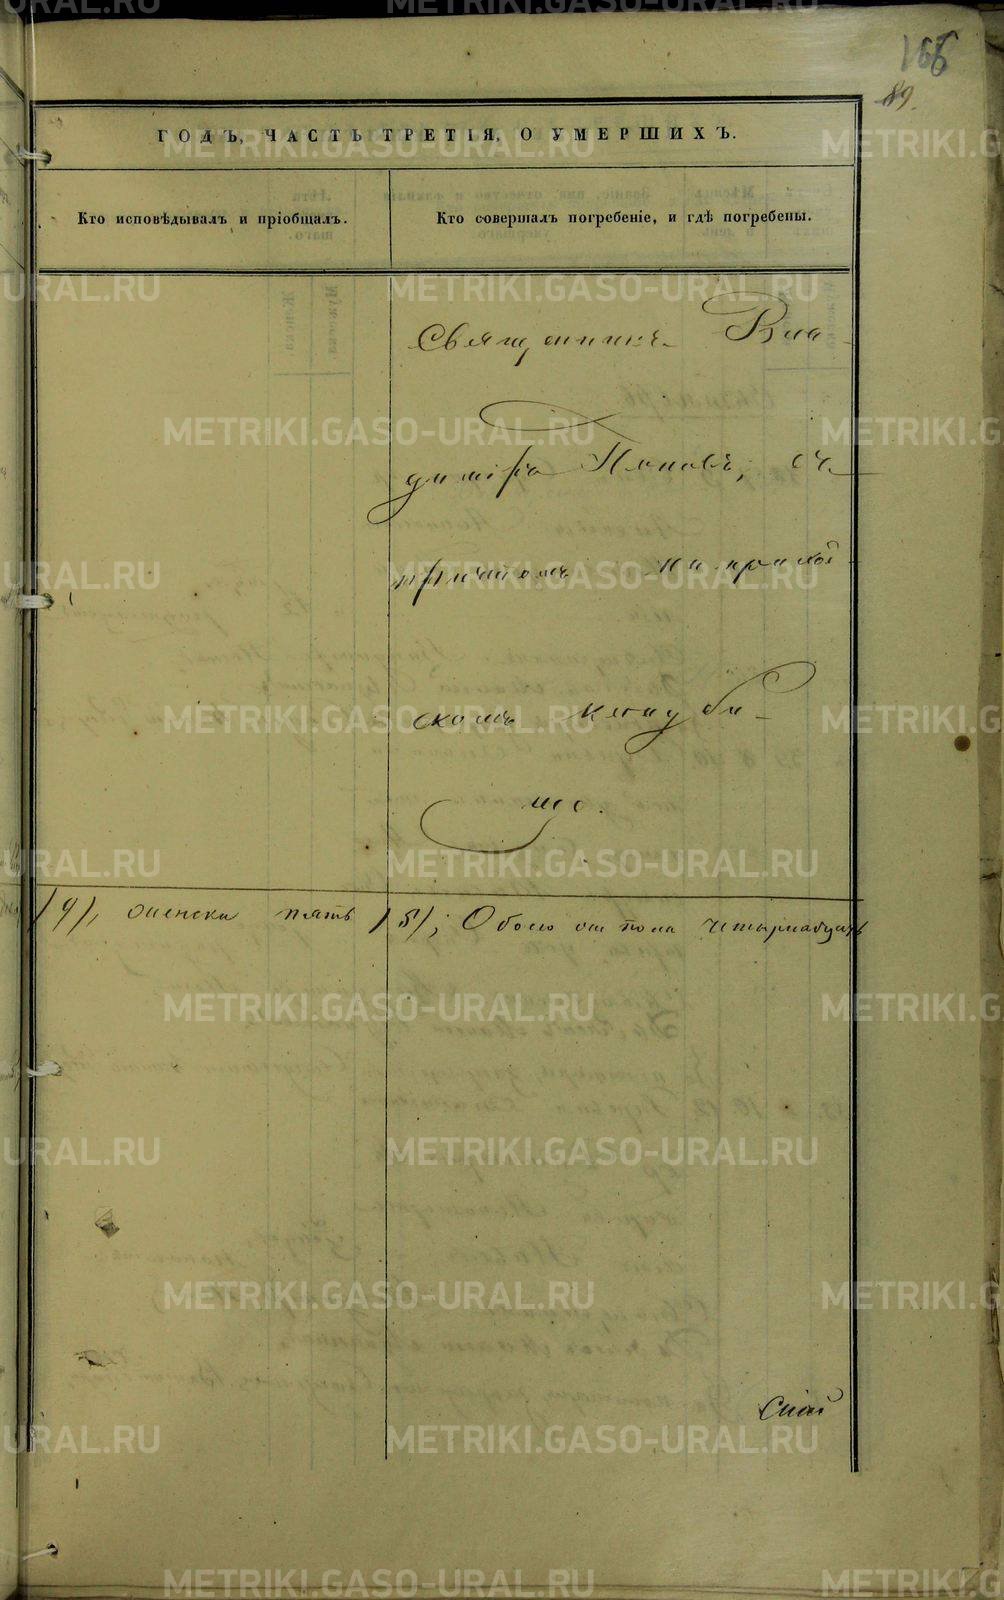 166
89.
ГОДЪ, ЧАСТЬ ТРЕТІЯ, О УМЕРШИХЪ.
Кто исповѣдывалъ и пріобщалъ.
Кто совершалъ погребеніе, и гдѣ погребены.
Священникъ Вла
диміръ Поповъ, съ
причтомъ на приход
скомъ кладби-
щѣ.
/9/, женска пять /5/; Обоего пола четырнадцать
METRIKI.GASO-URAL.RU